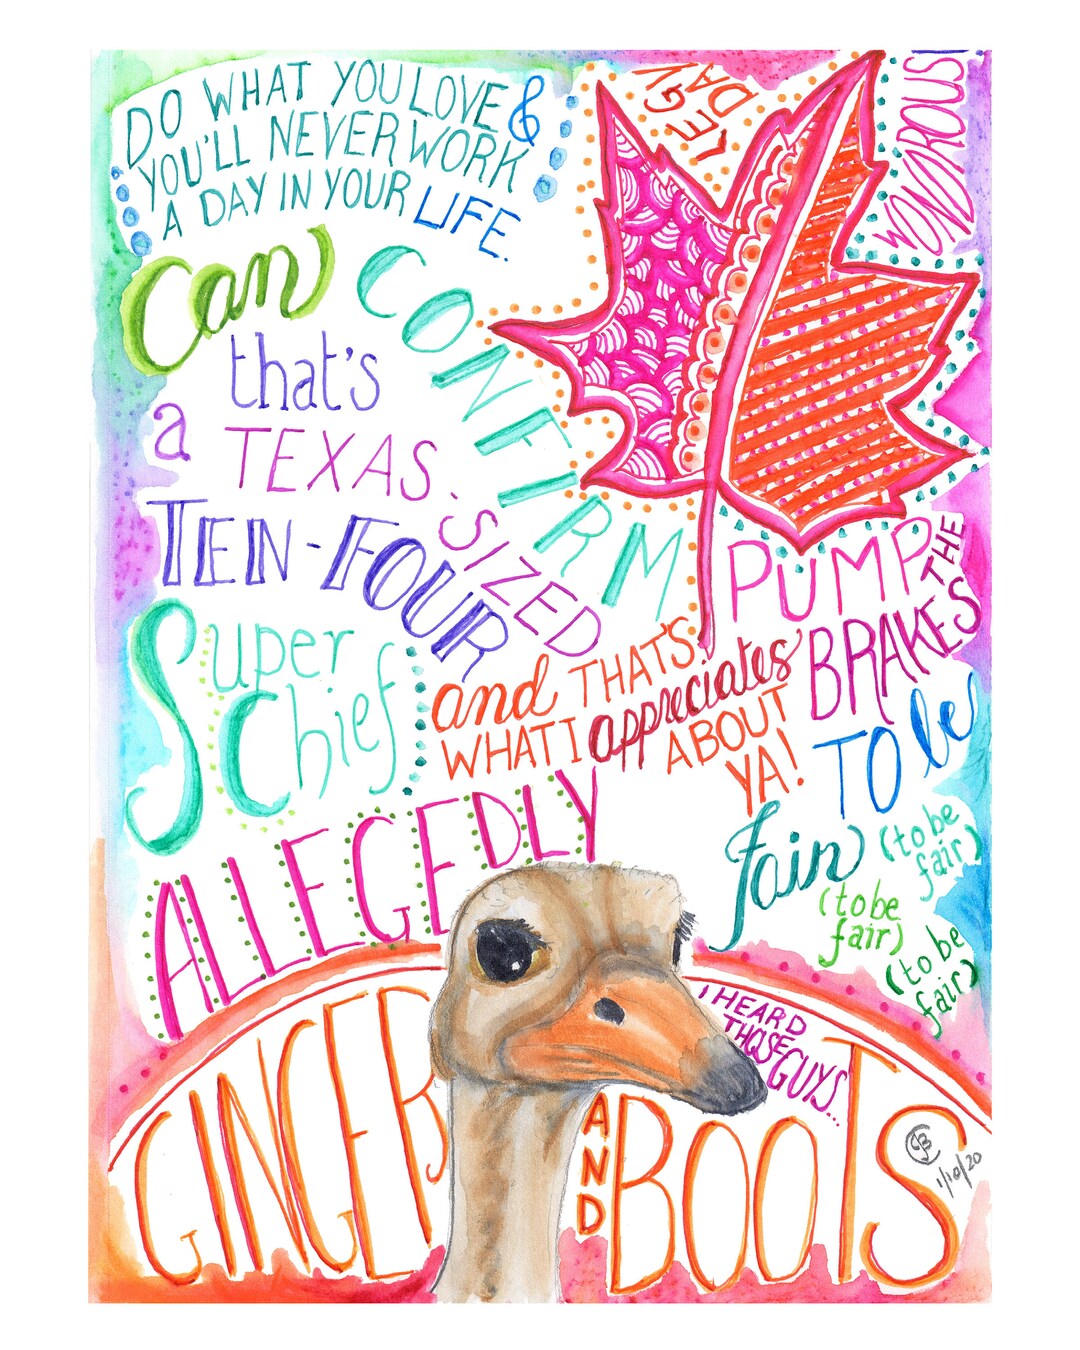 DO WHAT YOU LOVE &
YOU'LL NEVER WORK
A DAY IN YOUR LIFE.
LEGN
DAY
WONDROUS
Can
CONFIRM
that's
a TEXAS.
SIZED
TEN-FOUR
Super
Chief
PUMP THE
BRAKES
and THAT'S
WHAT I appreciates
ABOUT
YA!
TO be
fair (to be
fair)
(to be
fair)
(to be
fair)
ALLEGEDLY
I HEARD
THOSE
GUYS...
GINGER AND BOOTS
JCB
1/10/20